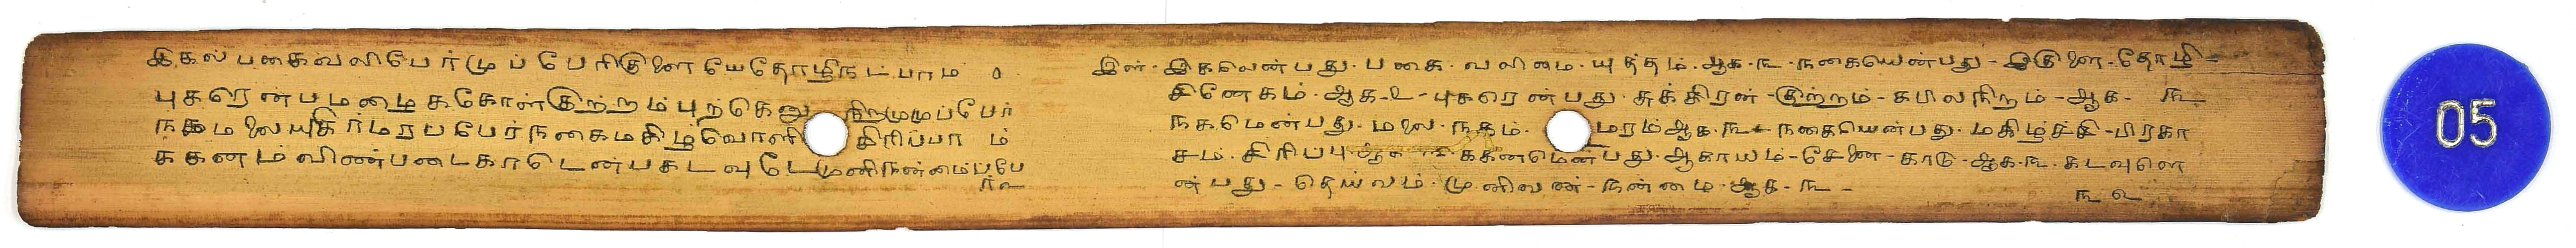 இகல் பகைவலிபேர்முப் பேரிகுளை யேதோழிநட்பாம் ௦
புகரென்பமழை சுகோள்குற்றம்புற்கெனு நிறமுமுப்பேர்
நகமலையுகிர்மரப்பேர்நகைமகிழ்வொளி சிரிப்பா ம்
ககனம்விண்படைகாடென்பகடவுடேமுனிநன்மைப்பே
ர்௩௨
இள் இகலென்பது பகை வலிமை யுத்தம் ஆக ௩ நகையென்பது இகுளை தோழி
சினேகம் ஆக ௨ புகரென்பது சுக்கிரன் குற்றம் கபிலநிறம் ஆக ௩
நகமென்பது மலை நகம் மரம் ஆக ௩ நகையென்பது மகிழ்ச்சி பிரகா
சம் சிரிப்பு ஆக ௩ ககனமென்பது ஆகாயம் சேனை காடு ஆக ௩ கடவுளெ
ன்பது தெய்வம் முனிவன் நன்மை ஆக ௩
௩ ௨
05